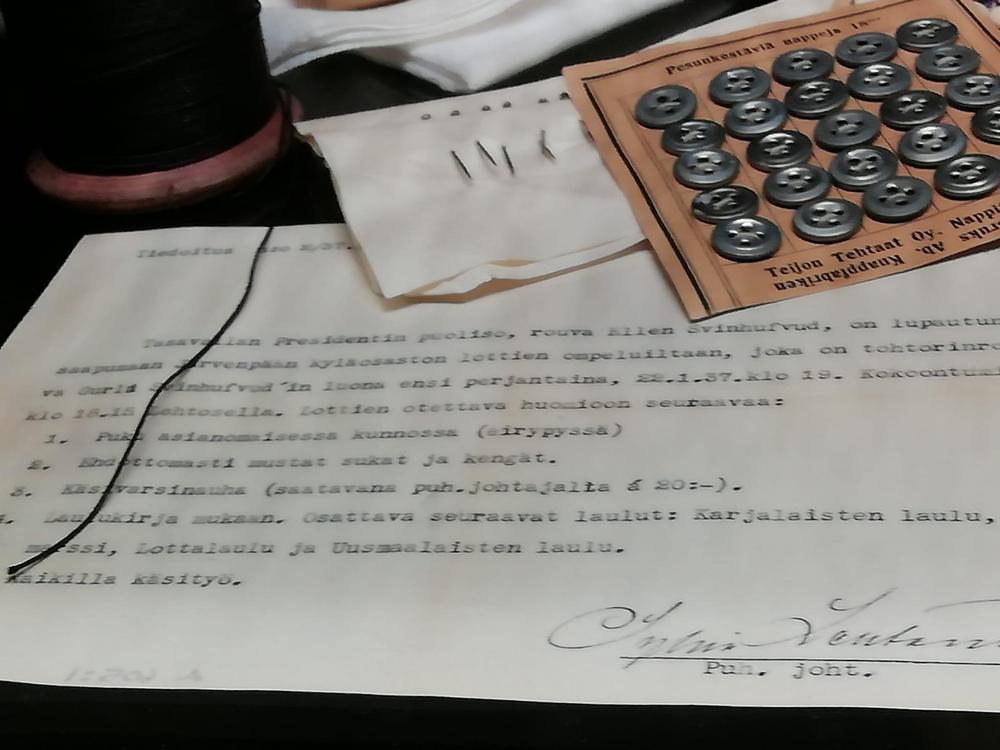 Pesunkestäviä nappeja
Teijon Tehtaat Oy. Nappi
ruks Ab. Knappfabriken
Tiedoitus
Tasavallan Presidentin puoliso, rouva Ellen Svinhufvud, on lupautun
saapumaan Järvenpään kyläosaston lottien ompeluiltaan, joka on tohtorinro
va Gurli Svinhufvud'in luona ensi perjantaina, 22.1.37.klo 19. Kokoontumi
klo 18.15 Lehtosella. Lottien otettava huomioon seuraavaa:
1. Puku asianomaisessa kunnossa (eirypyssä)
2. Ehdottomasti mustat sukat ja kengät.
3. Käsivarsinauha (saatavana puh.johtajalta á 20:-).
4. Laulukirja mukaan. Osattava seuraavat laulut: Karjalaisten laulu,
marssi, Lottalaulu ja Uusmaalaisten laulu.
Kaikilla käsityö.
Puh. joht.